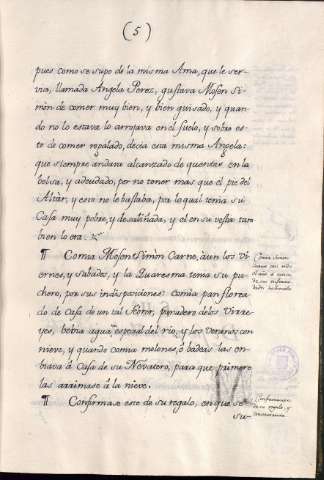 (5)
pues como se supo de la misma Ama, que le ser-
via, llamada Angela Perez, gustava Mosen Si-
món de comer muy bien, y bien guisado, y quan-
do no lo estava lo arrojava en el suelo, y sobre es-
te de comer regalado, decia esta misma Angela:
que siempre andava alcanzado de quentas en la
bolsa, y adeudado, por no tener mas que el pie del
Altar, y esto no le bastaba, por lo qual tenia su
Casa muy pobre, y desaliñada, y el en su vestir tam
bien lo era.
¶ Comia Mosen Simòn Carne, àun los Vi
ernes, y sabados, y la Quaresma tenia su pu
chero, por sus indisposiciones: comia pan florea
do de Casa de un tal panadero delos Virre
yes, bebia agua del rio, y los Veranos con
nieve, y quando comia melones, ò badeas las en-
biava à Casa de su Nevatero, para que primero
las arrimase à la nieve.
¶ Confirmase esto de su regalo, en que se
su-
Comia Simon
carne casi todo
el año à causa
de sus enferme-
dades
Confirmacion
de su regalo, y